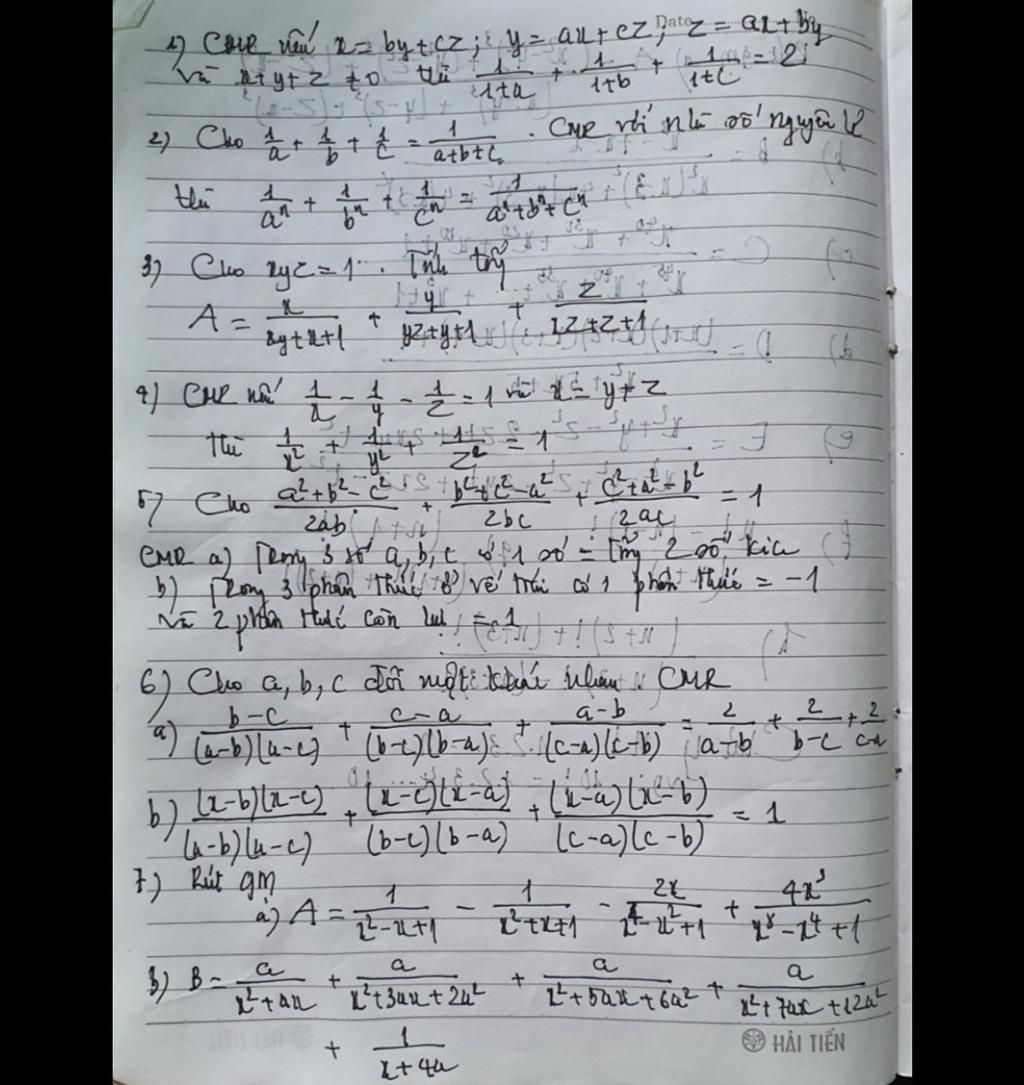 Date
1) CMR nếu x = by + cz ; y = ax + cz ; z = ax + by
và x+y+z ≠ 0 thì 1/(1+a) + 1/(1+b) + 1/(1+c) = 2
2) Cho 1/a + 1/b + 1/c = 1/(a+b+c) . CMR với n là số nguyên lẻ
thì 1/aⁿ + 1/bⁿ + 1/cⁿ = 1/(aⁿ+bⁿ+cⁿ)
3) Cho xyz = 1 . Tính tổng
A = x/(xy+x+1) + y/(yz+y+1) + z/(xz+z+1)
4) CMR nếu 1/x - 1/y - 1/z = 1 và x = y + z
thì 1/x² + 1/y² + 1/z² = 1
5) Cho (a²+b²-c²)/2ab + (b²+c²-a²)/2bc + (c²+a²-b²)/2ac = 1
CMR a) Trong 3 số a, b, c có 1 số = tổng 2 số kia
b) Trong 3 phân thức ở vế trái có 1 phân thức = -1
và 2 phân thức còn lại = 1
6) Cho a, b, c đôi một khác nhau . CMR
a) (b-c)/((a-b)(a-c)) + (c-a)/((b-c)(b-a)) + (a-b)/((c-a)(c-b)) = 2/(a-b) + 2/(b-c) + 2/(c-a)
b) ((x-b)(x-c))/((a-b)(a-c)) + ((x-c)(x-a))/((b-c)(b-a)) + ((x-a)(x-b))/((c-a)(c-b)) = 1
7) Rút gọn
a) A = 1/(x²-x+1) - 1/(x²+x+1) - 2x/(x⁴-x²+1) + 4x³/(x⁸-x⁴+1)
b) B = a/(x²+ax) + a/(x²+3ax+2a²) + a/(x²+5ax+6a²) + a/(x²+7ax+12a²)
+ 1/(x+4a)
HẢI TIẾN